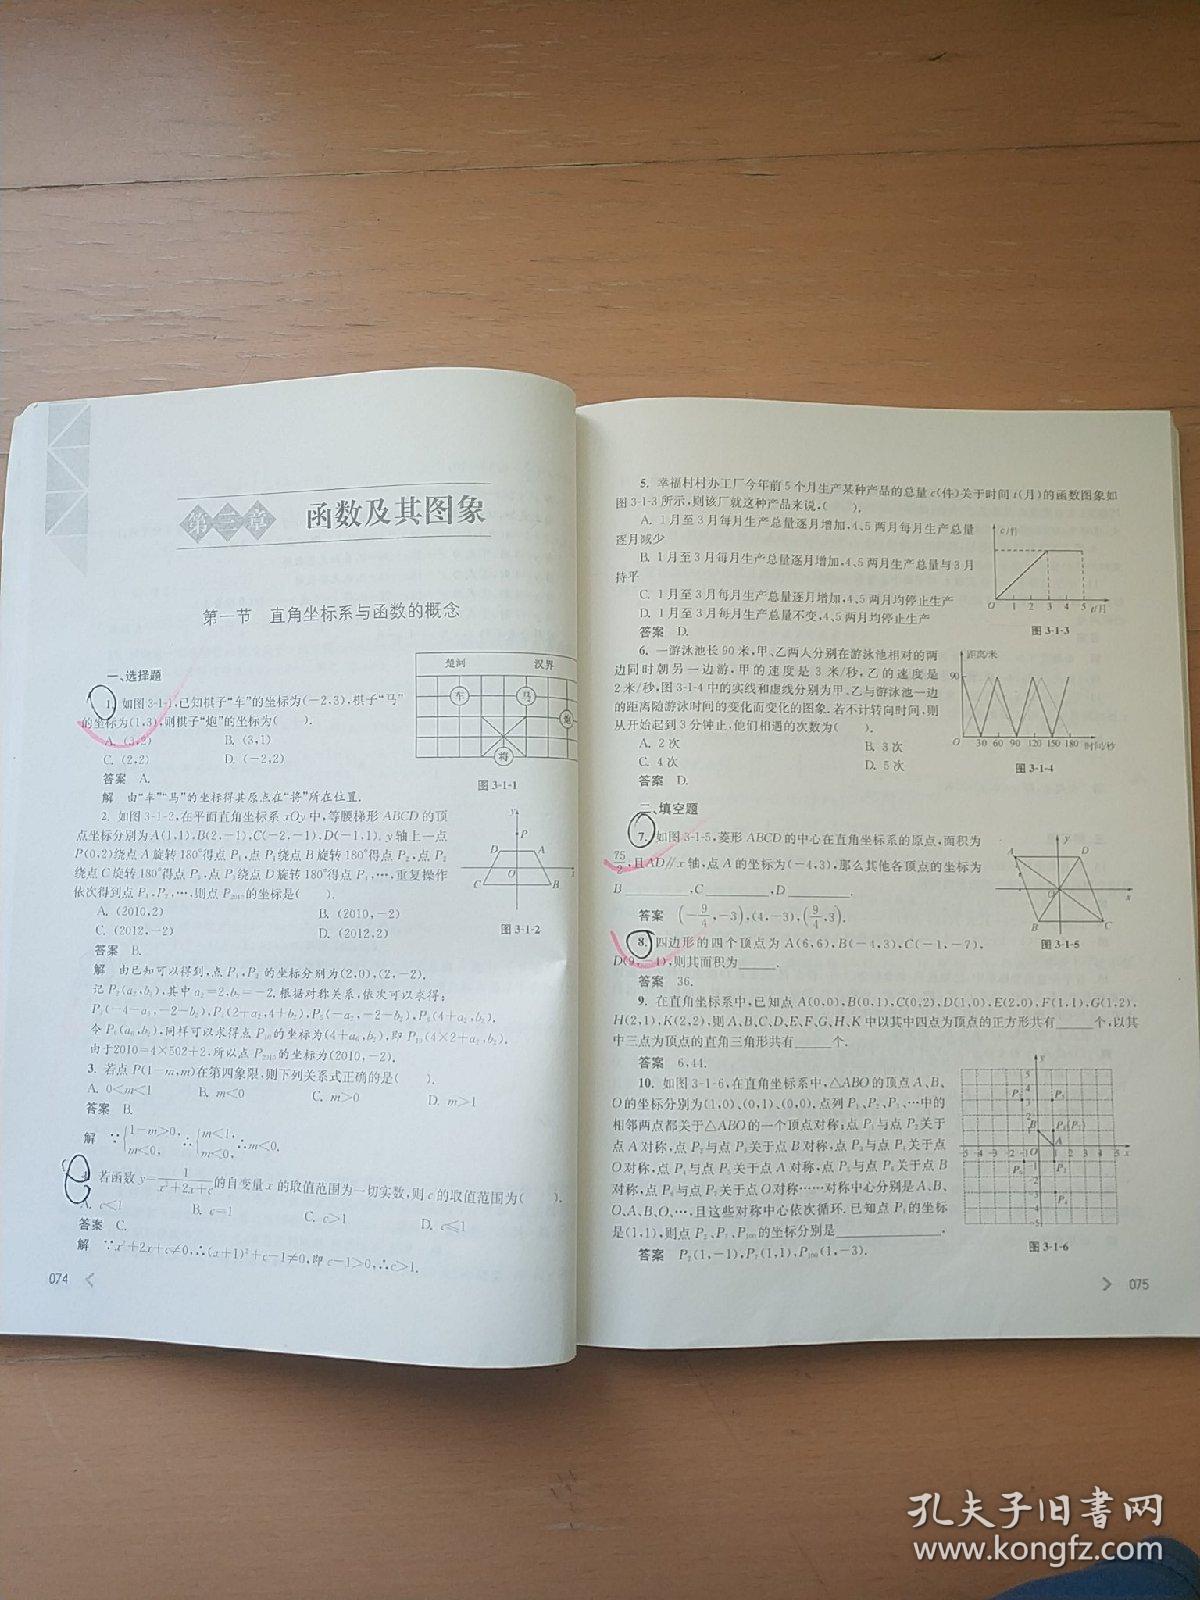 第三章 函数及其图象
第一节 直角坐标系与函数的概念
一、选择题
1. 如图3-1-1,已知棋子“车”的坐标为(-2,3),棋子“马”
的坐标为(1,3),则棋子“炮”的坐标为( ).
A. (3,2) B. (3,1)
C. (2,2) D. (-2,2)
答案 A.
解 由“车”“马”的坐标得其原点在“将”所在位置.
楚河 汉界
车 马 炮 将
图 3-1-1
2. 如图3-1-2,在平面直角坐标系xOy中,等腰梯形ABCD的顶
点坐标分别为A(1,1),B(2,-1),C(-2,-1),D(-1,1). y轴上一点
P(0,2)绕点A旋转180°得点P₁,点P₁绕点B旋转180°得点P₂,点P₂
绕点C旋转180°得点P₃,点P₃绕点D旋转180°得点P₄,…,重复操作
依次得到点P₁,P₂,…,则点P₂₀₁₀的坐标是( ).
A. (2010,2) B. (2010,-2)
C. (2012,-2) D. (2012,2)
答案 B.
y P D A O C B
图 3-1-2
解 由已知可以得到,点P₁,P₂的坐标分别为(2,0),(2,-2).
记P₂(a₂,b₂),其中a₂=2,b₂=-2.根据对称关系,依次可以求得:
P₃(-4-a₂,-2-b₂),P₄(2+a₂,4+b₂),P₅(-a₂,-2-b₂),P₆(4+a₂,b₂).
令P₆(a₆,b₂),同样可以求得点P₁₀的坐标为(4+a₆,b₂),即P₁₀(4×2+a₂,b₂).
由于2010=4×502+2,所以点P₂₀₁₀的坐标为(2010,-2).
3. 若点P(1-m,m)在第四象限,则下列关系式正确的是( ).
A. 0<m<1 B. m<0 C. m>0 D. m>1
答案 B.
解 ∵{1-m>0, m<0, ∴{m<1, m<0, ∴m<0.
4. 若函数y=1/(x²+2x+c)的自变量x的取值范围为一切实数,则c的取值范围为( ).
A. c<1 B. c=1 C. c>1 D. c≤1
答案 C.
解 ∵x²+2x+c≠0,∴(x+1)²+c-1≠0,即c-1>0,∴c>1.
074
5. 幸福村村办工厂今年前5个月生产某种产品的总量c(件)关于时间t(月)的函数图象如
图3-1-3所示,则该厂就这种产品来说,( ).
A. 1月至3月每月生产总量逐月增加,4、5两月每月生产总量
逐月减少
B. 1月至3月每月生产总量逐月增加,4、5两月生产总量与3月
持平
C. 1月至3月每月生产总量逐月增加,4、5两月均停止生产
D. 1月至3月每月生产总量不变,4、5两月均停止生产
答案 D.
c/件
O 1 2 3 4 5 t/月
图 3-1-3
6. 一游泳池长90米,甲、乙两人分别在游泳池相对的两
边同时朝另一边游,甲的速度是3米/秒,乙的速度是
2米/秒,图3-1-4中的实线和虚线分别为甲、乙与游泳池一边
的距离随游泳时间的变化而变化的图象.若不计转向时间,则
从开始起到3分钟止,他们相遇的次数为( ).
A. 2次 B. 3次
C. 4次 D. 5次
答案 D.
距离/米
90
O 30 60 90 120 150 180 时间/秒
图 3-1-4
二、填空题
7. 如图3-1-5,菱形ABCD的中心在直角坐标系的原点,面积为
75/2,且AD∥x轴,点A的坐标为(-4,3),那么其他各顶点的坐标为
B______,C______,D______.
答案 (-9/4,-3),(4,-3),(9/4,3).
y A D O x B C
图 3-1-5
8. 四边形的四个顶点为A(6,6),B(-4,3),C(-1,-7),
D(9,-1),则其面积为____.
答案 36.
9. 在直角坐标系中,已知点A(0,0),B(0,1),C(0,2),D(1,0),E(2,0),F(1,1),G(1,2),
H(2,1),K(2,2),则A、B、C、D、E、F、G、H、K中以其中四点为顶点的正方形共有____个,以其
中三点为顶点的直角三角形共有____个.
答案 6,44.
10. 如图3-1-6,在直角坐标系中,△ABO的顶点A、B、
O的坐标分别为(1,0)、(0,1)、(0,0),点列P₁、P₂、P₃、…中的
相邻两点都关于△ABO的一个顶点对称:点P₁与点P₂关于
点A对称,点P₂与点P₃关于点B对称,点P₃与点P₄关于点
O对称,点P₄与点P₅关于点A对称,点P₅与点P₆关于点B
对称,点P₆与点P₇关于点O对称……对称中心分别是A、B、
O,A、B、O、…,且这些对称中心依次循环.已知点P₁的坐标
是(1,1),则点P₂、P₇、P₁₀₀的坐标分别是______.
答案 P₂(1,-1),P₇(1,1),P₁₀₀(1,-3).
图 3-1-6
075
孔夫子旧书网
www.kongfz.com